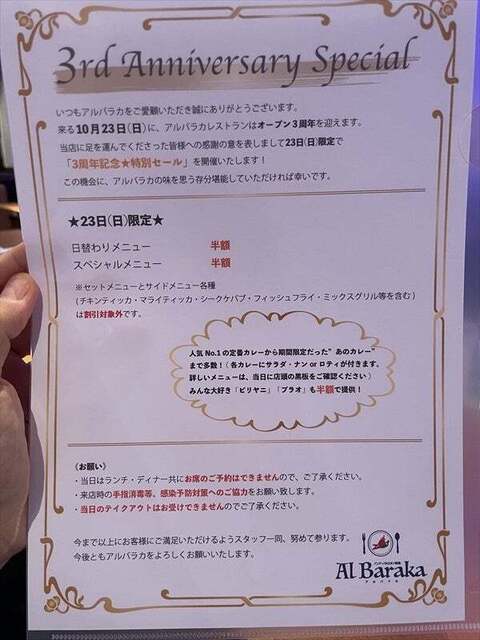 3rd Anniversary Special
いつもアルバラカをご愛顧いただき誠にありがとうございます。
来る10月23日(日)に、アルバラカレストランはオープン3周年を迎えます。
当店に足を運んでくださった皆様への感謝の意を表しまして23日(日)限定で
「3周年記念★特別セール」を開催いたします！
この機会に、アルバラカの味を思う存分堪能していただければ幸いです。
★23日(日)限定★
日替わりメニュー 半額
スペシャルメニュー 半額
※セットメニューとサイドメニュー各種
(チキンティッカ・マライティッカ・シークケバブ・フィッシュフライ・ミックスグリル等を含む)
は割引対象外です。
人気No.1の定番カレーから期間限定だった"あのカレー"
まで多数！(各カレーにサラダ・ナンorロティが付きます。
詳しいメニューは、当日に店頭の黒板をご確認ください)
みんな大好き「ビリヤニ」「プラオ」も半額で提供！
〈お願い〉
・当日はランチ・ディナー共にお席のご予約はできませんので、ご了承ください。
・来店時の手指消毒等、感染予防対策へのご協力をお願い致します。
・当日のテイクアウトはお受けできませんのでご了承ください。
今まで以上にお客様にご満足いただけるようスタッフ一同、努めて参ります。
今後ともアルバラカをよろしくお願いいたします。
Al Baraka
アルバラカ